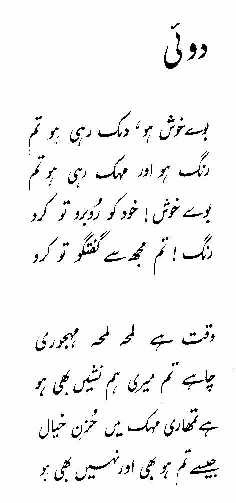 دوئی
بوئے خوش ہو، دمک رہی ہو تم
رنگ ہو اور مہک رہی ہو تم
بوئے خوش! خود کو رُوبرو تو کرو
رنگ! تم مجھ سے گفتگو تو کرو
وقت ہے لمحہ لمحہ مہجوری
چاہے تم میری ہم نشیں بھی ہو
ہے تمھاری مہک میں حُزنِ خیال
جیسے تم ہو بھی اور نہیں بھی ہو